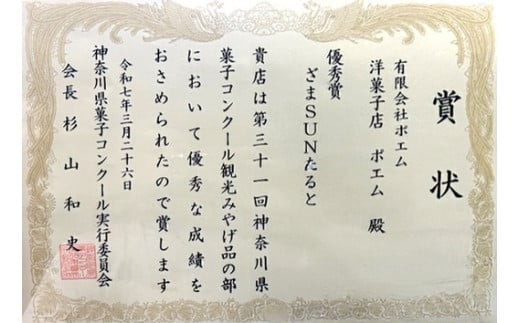 賞状
有限会社ポエム
洋菓子店 ポエム 殿
優秀賞
ざまSUNたると
貴店は第三十一回神奈川県
菓子コンクール観光みやげ品の部
において優秀な成績を
おさめられたので賞します
令和七年三月二十六日
神奈川県菓子コンクール実行委員会
会長 杉山和史